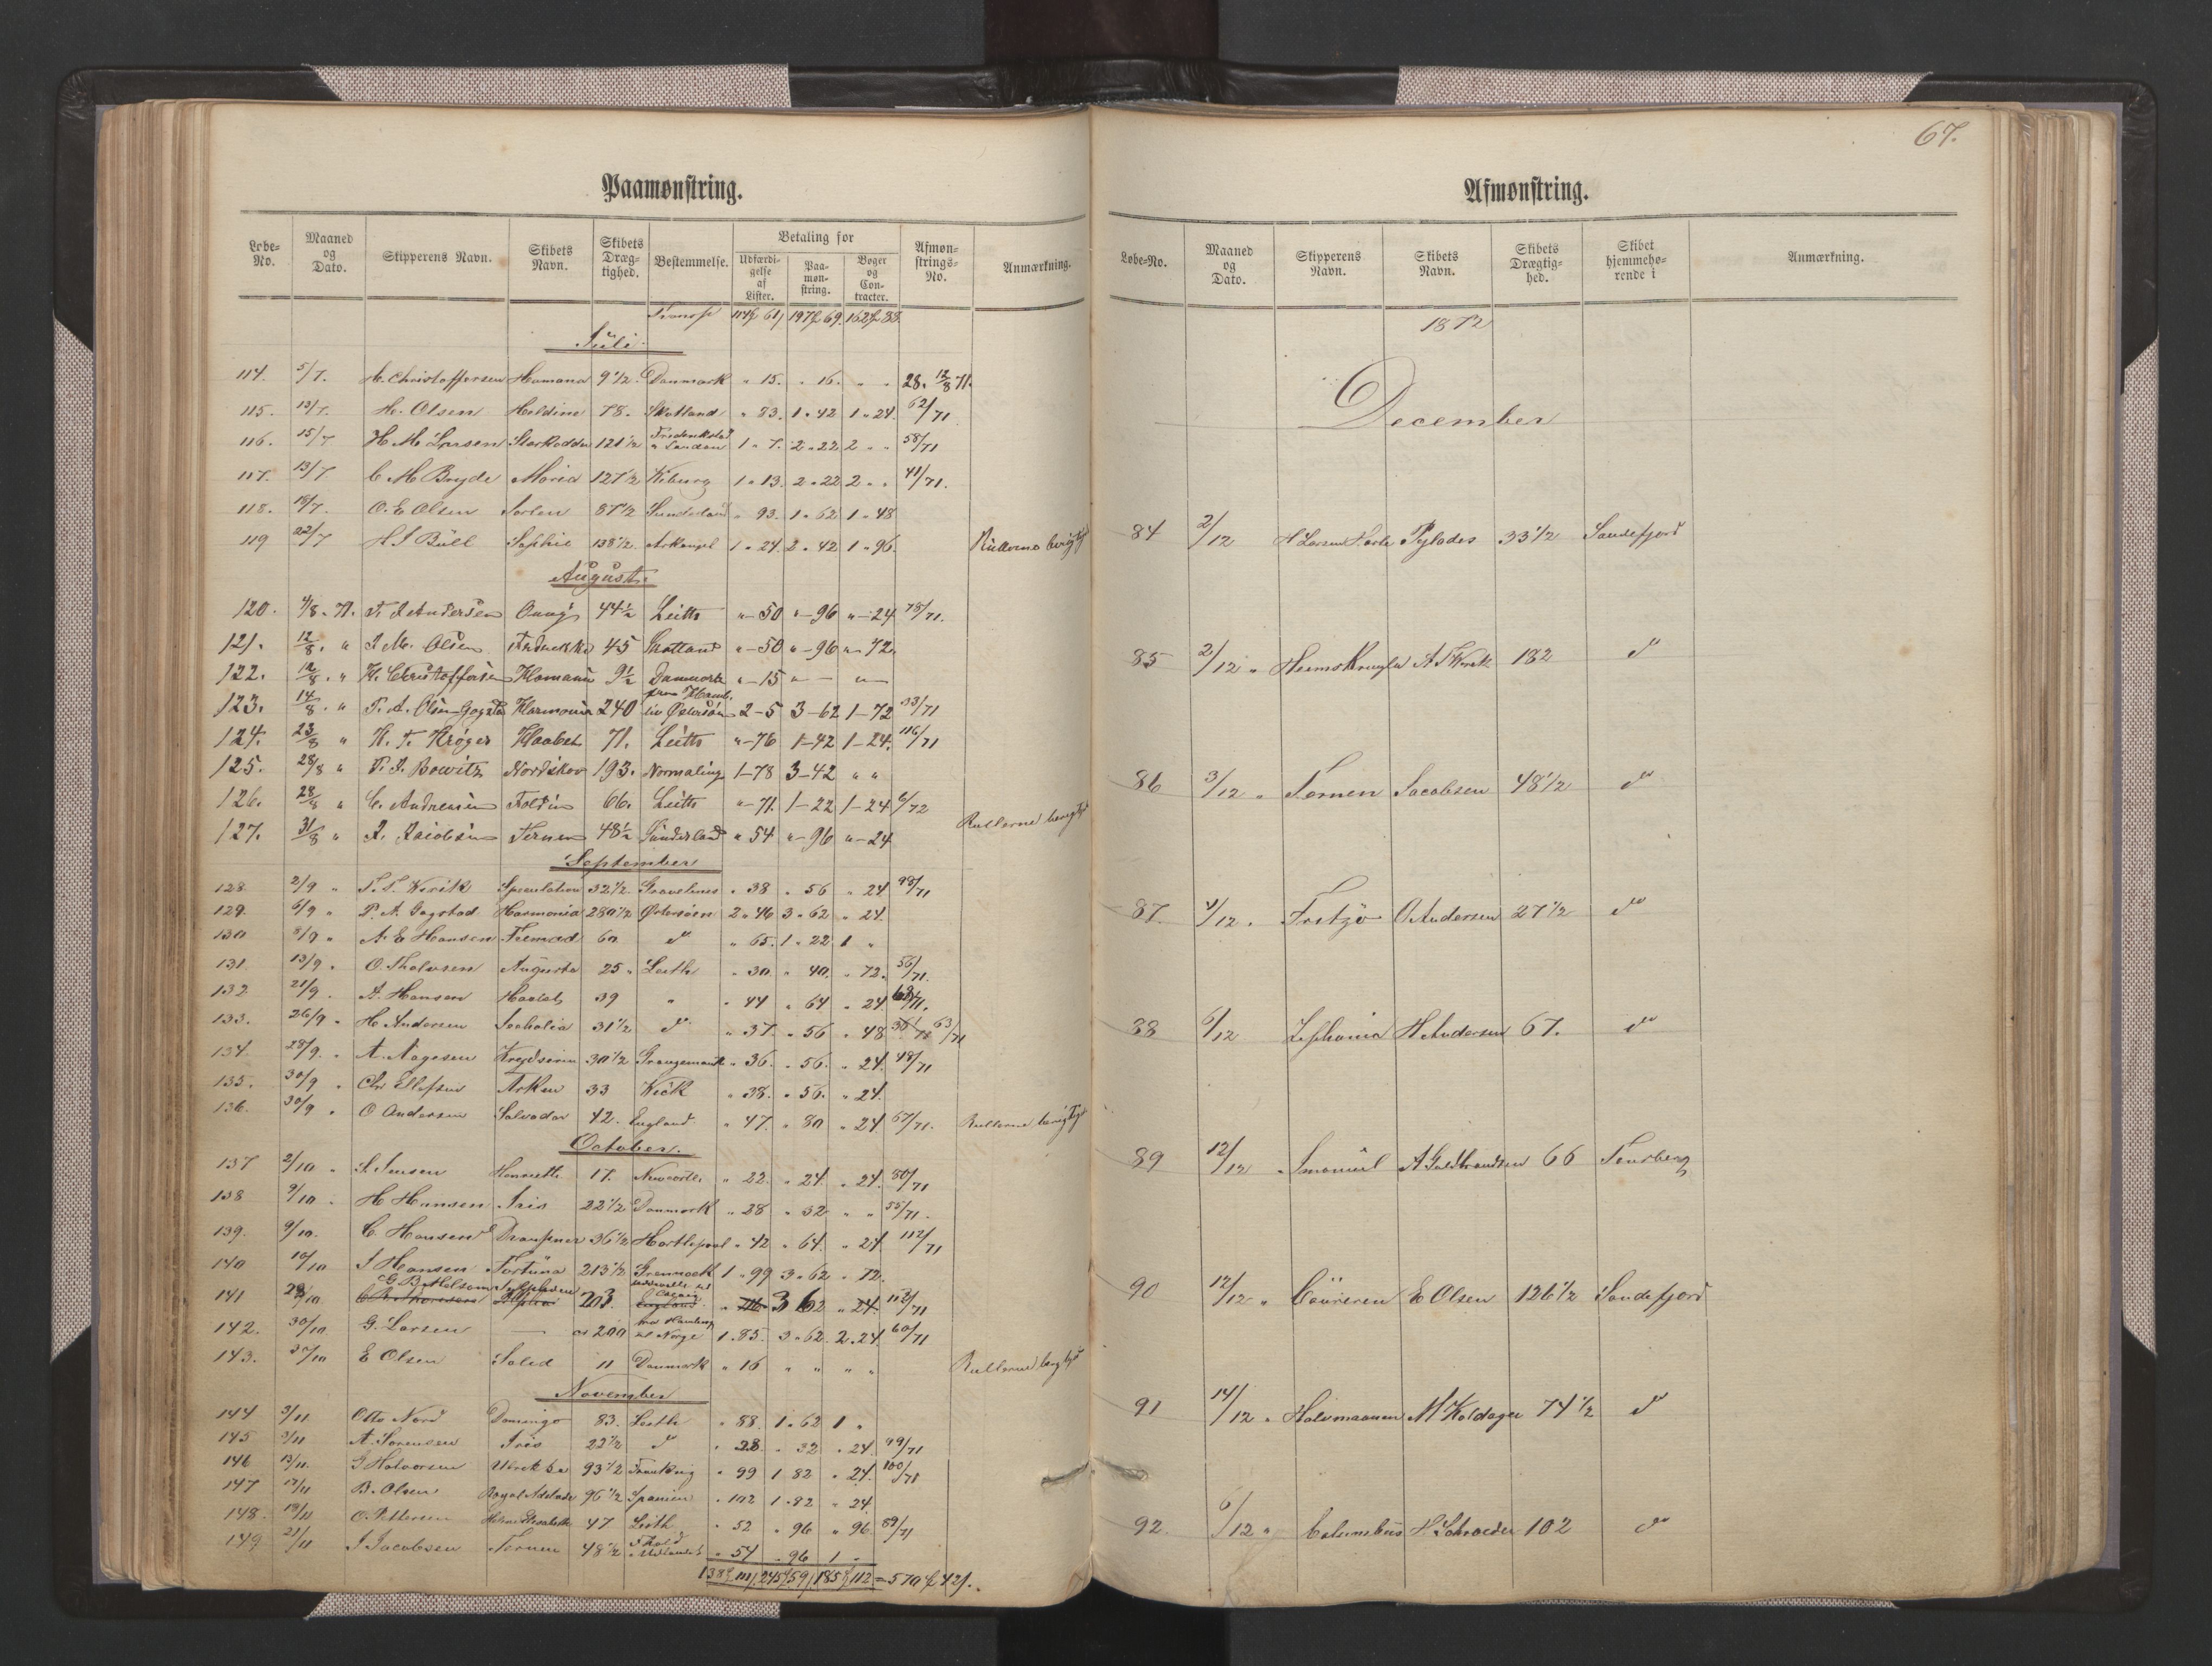 Paamønstring.
Løbe-No. Maaned og Dato. Skipperens Navn. Skibets Navn. Skibets Dræg-tighed. Bestemmelse. Betaling for Udfærdi-gelse af Lister. Paa-møn-string. Bøger og Con-tracter. Afmøn-strings-No. Anmærkning.
Transp 197 69. 162 88.
Juli.
114. 5/7. H. Christoffersen Hamana 9 1/2. Danmark " 15. " 16. " " 28. 12/8 71.
115. 13/7. H. Olsen Haldine 78. Skotland " 83. 1 " 42 1 " 24. 62/71
116. 15/7 H M Larsen Starkodder 121 1/2 Frederikstad " London 1 " 7. 2 " 22 2 " " 58/71
117. 13/7 C M Bryde Maria 127 1/2 Wiburg 1 " 13. 2 " 22 2 " " 41/71.
118. 18/7. O. E Olsen 87 1/2 Sunderland " 93. 1 " 62 1 " 48
119 22/7 H J Büll Sophie 138 1/2. Arkangel 1 " 24. 2 " 42 1 " 96. Rullerne berigtigt
August.
120. 4/8. 71. T. J. Andersen 44 1/2 Leith " - 50 " - 96 " - 24 78/71.
121. 12/8. " J. M. Olsen 45 Skotland " - 50 " - 96 " - 72.
122. 12/8. " H. Christoffersen Hamana 9 1/2 Danmark " - 15 " - " -
123. 14/8. " P. A. Olsen Gogstad Harmonia 240 fra Hamb. til Østersøen 2 - 5 3 - 62 1 - 72 33/71
124. 23/8 " H. T. Krøger Haabet 71. Leith " - 76 1 - 42 1 - 24. 116/71
125. 28/8 " P. J. Bowitz Nordskov 193. Normaling 1 - 78 3 - 42 " "
126. 28/8 " C. Andresen Foldin 66. Leith " - 71. 1 - 22 1 - 24 6/72
127. 31/8 " J. Jacobsen Ternen 48 1/2 Sunderland " 54 " - 96 " - 24 Rullerne berigtigt
September
128 2/9 " T. T. Wirik Speculation 32 1/2. Gravelines " 38 " 56 " 24 98/71
129. 6/9 " P. A. Gogstad Harmonia 280 1/2 Østersøen 2 " 46 3 " 62 " 24.
130 8/9 " A. E Hansen Fremad 60 do " 65. 1 " 22 1 "
131 13/9 " O. Tholvsen Augusta 25 " Leith " 30 " 40. " 72. 56/71.
132 21/9. A. Hansen Haabet 39 " " 44 " 64 " 24 68/71.
133. 26/9 " H Andersen 31 1/2 do " 37. " 56 " 48 63/71
134. 28/9. " A. Aagesen Krydseren 30 1/2 Grangemouth " 36. " 56. " 24. 48/71
135. 30/9 " Chr Ellefsen Arken 33 Wick " 38. " 56. " 24.
136. 30/9 " O Andersen Salvador 42. England " 47. " 80 " 24 67/71. Rullerne berigtigt
October.
137 2/10 " S. Jensen Henriette 17. Newcastle " 22. " 24. " 24. 80/71
138 9/10 " H Hansen Iris 22 1/2 Danmark " 28 " 32 " " 55/71.
139. 9/10. C. Hansen Draupner 36 1/2 Hartlepool " 42 " 64. " 24. 112/71
140 10/10 J Hansen Fortuna 213 1/2 Greenock 1 " 99 3 " 62 " 72.
141 28/10 G. Bertelsen 203 England 3 62 " 24. 112/71
142. 30/10 G. Larsen — ca 200 fra Hamburg til Norge 1. 85. 3 " 62. 2. 24. 60/71
143. 30/10 E Olsen Solid 11 Danmark " 16 " " " " Rullerne berigtigt
November
144 3/11 Otto Nord Domingo 83. Leith " 88. 1 " 62 1 "
145 3/11 A. Sørensen Iris 22 1/2 do " 28. " 32 " 24. 99/71
146 13/11. J Halvorsen Ulrikka 93 1/2 Frankrig " 99 1 82 " 24. 100/71
147 17/11 B. Olsen Royal Adelaide 96 1/2 Spanien " 102 1 " 82 " 24.
148. 19/11 O. Pettersen Helene Elisabeth 47 Leith " 52 " 96 " 96. 89/71
149 21/11 J Jacobsen Ternen 48 1/2 " 54 " 96 1 "
138 111 245 59 185 112 = 570 42.
67.
Afmønstring.
Løbe-No. Maaned og Dato. Skipperens Navn. Skibets Navn. Skibets Drægtig-hed. Skibet hjemmehø-rende i Anmærkning.
1872
December
84 2/12 H Larsen Pylades 33 1/2 Sandefjord
85 2/12 " Heimskringla A T Wirik 182 do
86 3/12 " Ternen Jacobsen 48 1/2 do
87. 4/12 . Fritzö O Andersen 27 1/2 do
88 6/12 Zephania H Andersen 67. do
89 12/12 " Immanuel A Guldbrandsen 66 Tønsberg
90 12/12 " Coureren E Olsen 126 1/2 Sandefjord
91 14/12 " Halvmaanen M Koldager 74 1/2 do
92. 6/12 " Columbus H. Schroeder 102 do